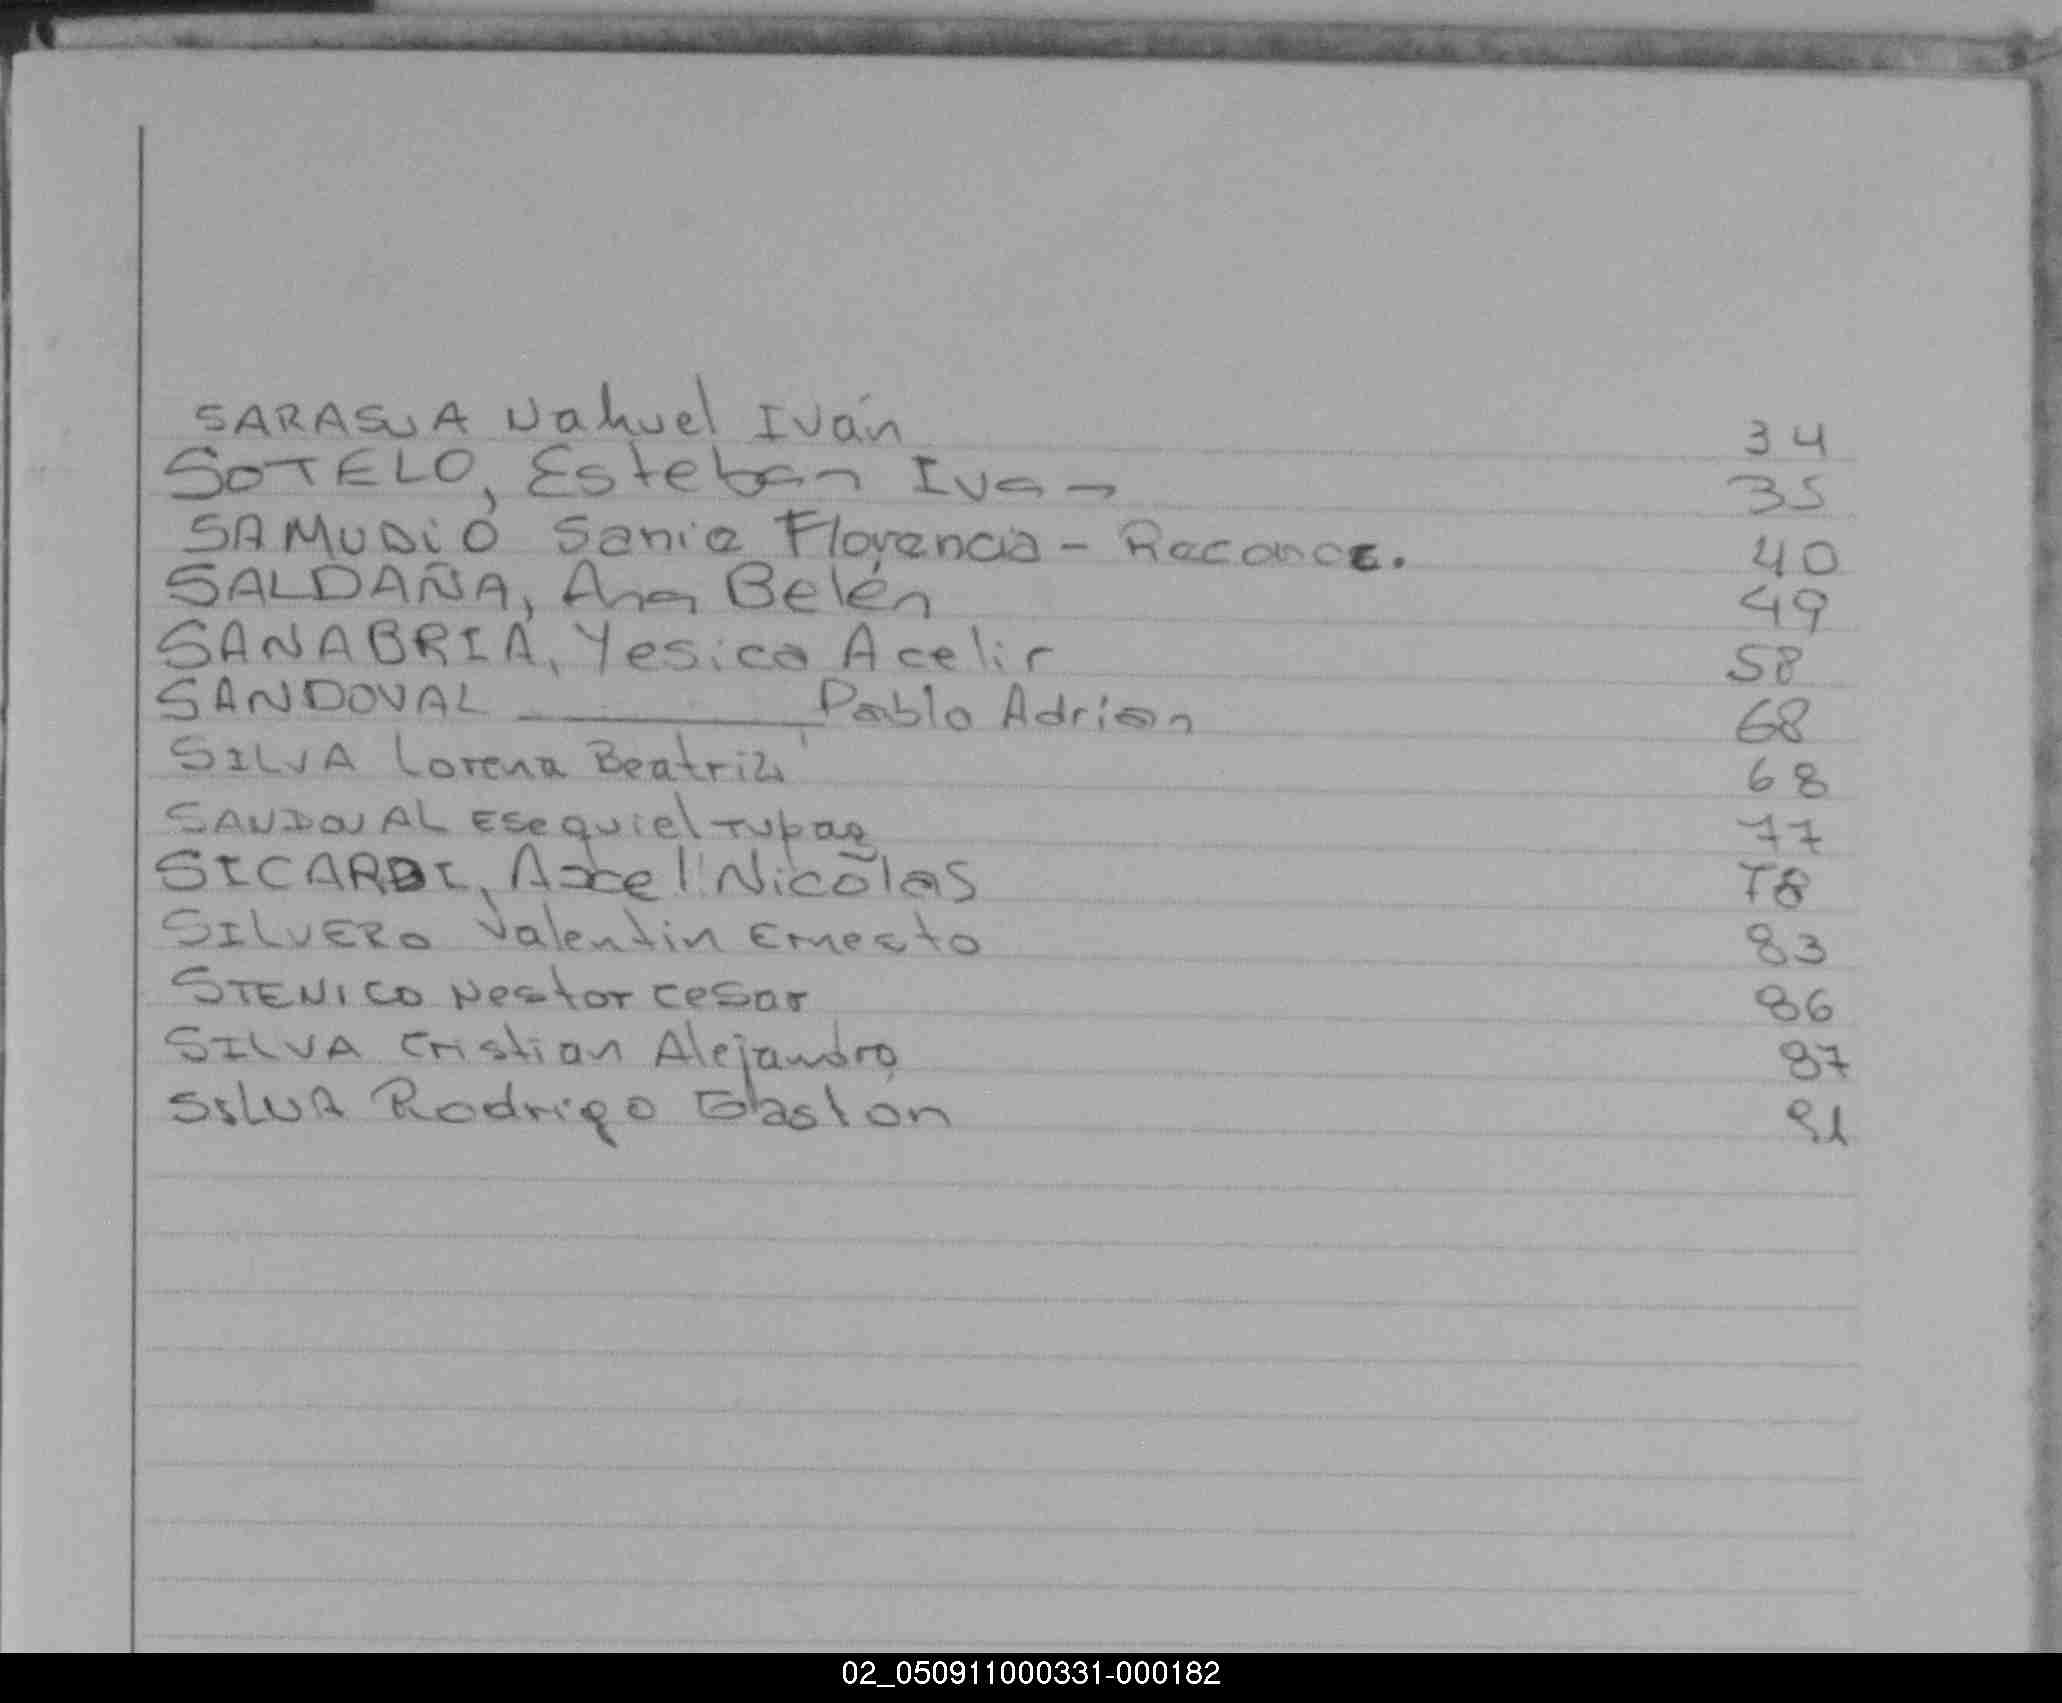 SARASUA Nahuel Iván 34
SOTELO, Esteban Ivan 35
SAMUDIO Sania Florencia - Reconoc. 40
SALDAÑA, Ana Belén 49
SANABRIA, Yesica Acelir 58
SANDOVAL Pablo Adrian 68
SILVA Lorena Beatriz 68
SANDOVAL Esequiel Tupaq 77
SICARDI, Axcel Nicolas 78
SILVERO Valentin Ernesto 83
STENICO Nestor Cesar 86
SILVA Cristian Alejandro 87
SILVA Rodrigo Gaston 91
02_050911000331-000182